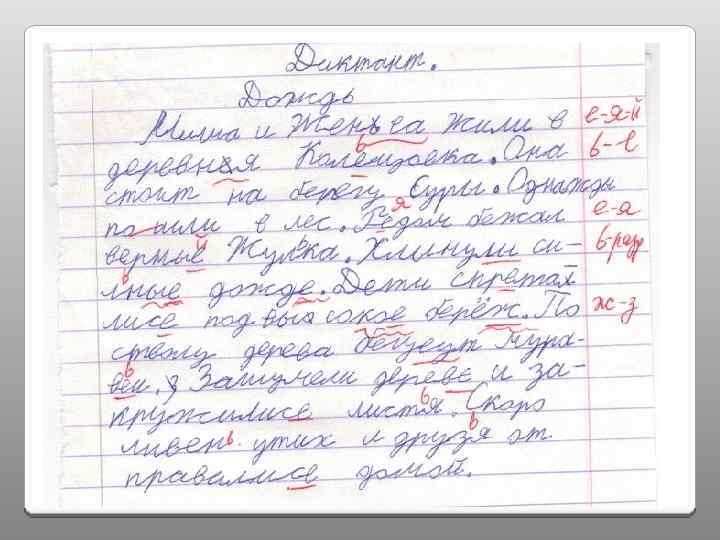 Диктант.
Дождь
Миша и Женьеа жили в е-я-й
деревняя Колемзовка. Она ь-е
стоит на берегу Суры. Однажды
пошли в лес. Редом бежал е-я
верные Жулька. Хлинули си- ь-разд
лные дожде. Дети скретал
лисе под высокое берёж. По ж-з
стволу дерева бегуеут мура-
веи. Зашумели дереве и за-
кружилисе листья. Скоро
ливень утих и друзья от
правалисе домой.